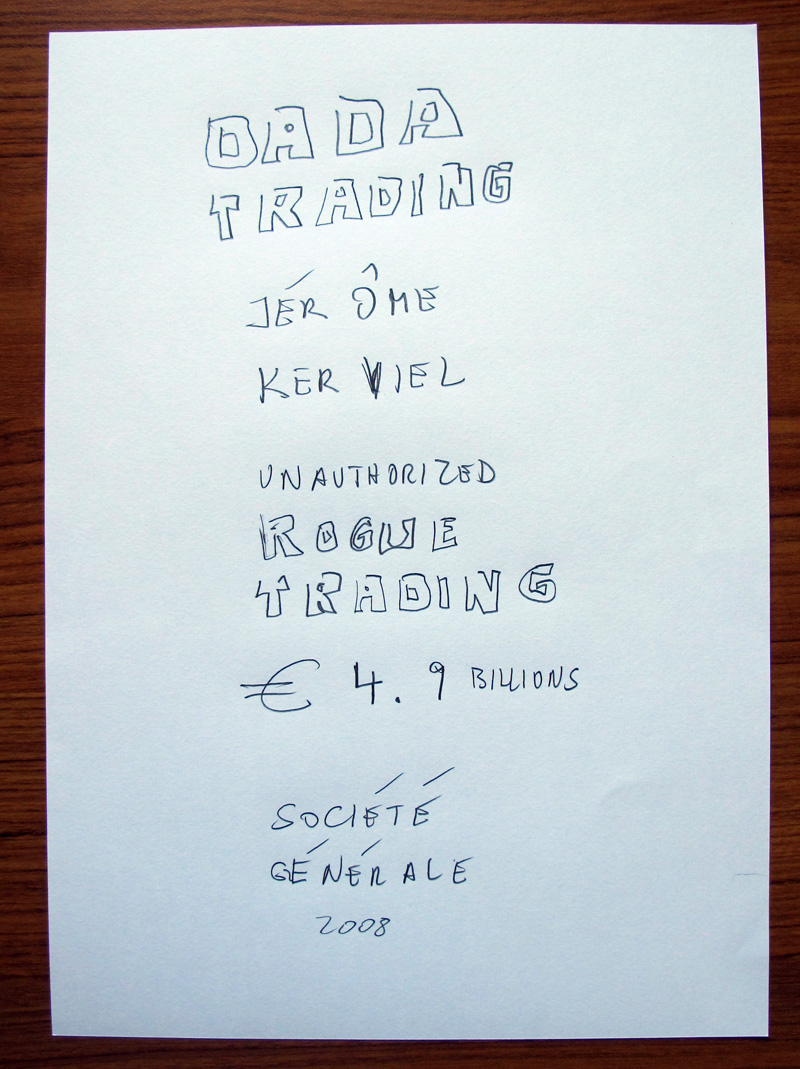 DADA
TRADING
JÉRÔME
KERVIEL
UNAUTHORIZED
ROGUE
TRADING
€ 4.9 BILLIONS
SOCIÉTÉ
GÉNÉRALE
2008